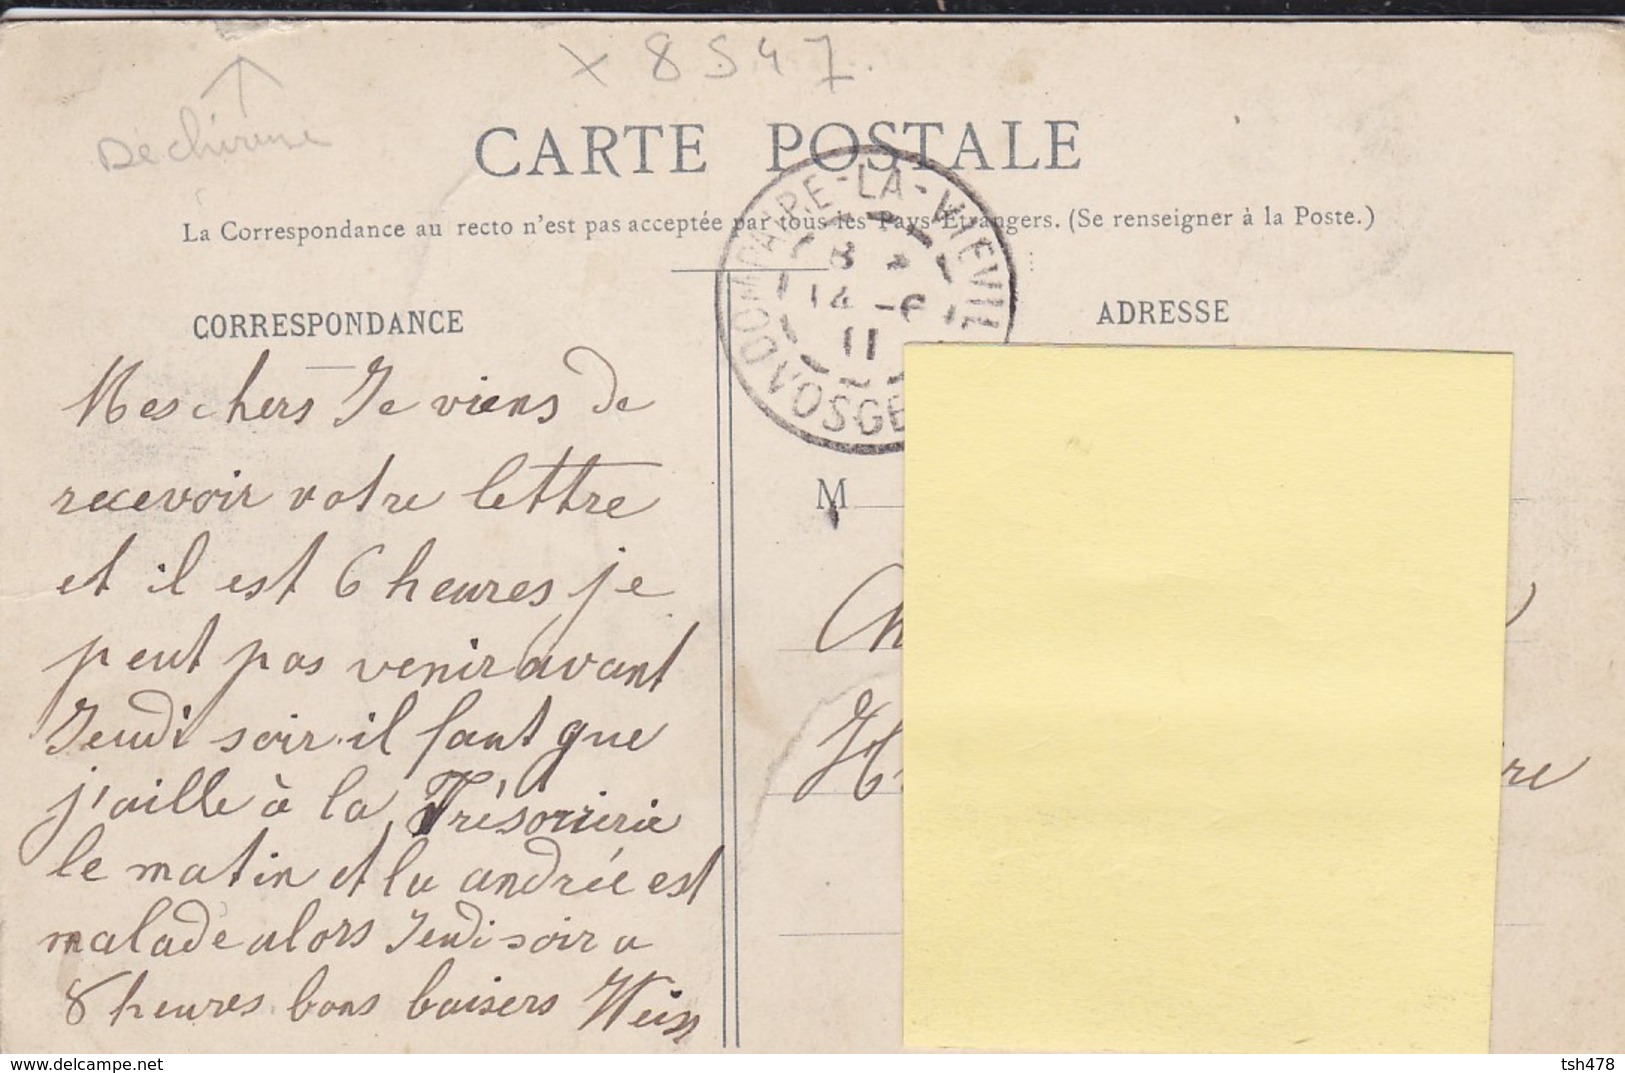 x 8547.
Déchirure
CARTE POSTALE
La Correspondance au recto n'est pas acceptée par tous les Pays Etrangers. (Se renseigner à la Poste.)
DOMPAIRE-LA-VIEVILLE
8
14 -6
11
VOSGE
CORRESPONDANCE
Mes chers Je viens de
recevoir votre lettre
et il est 6 heures je
peut pas venir avant
Jeudi soir il faut que
j'aille à la Trésorirerie
le matin et la andrée est
malade alors Jeudi soir a
8 heures bons baisers Weiss
ADRESSE
M
re
delcampe.net
tsh478